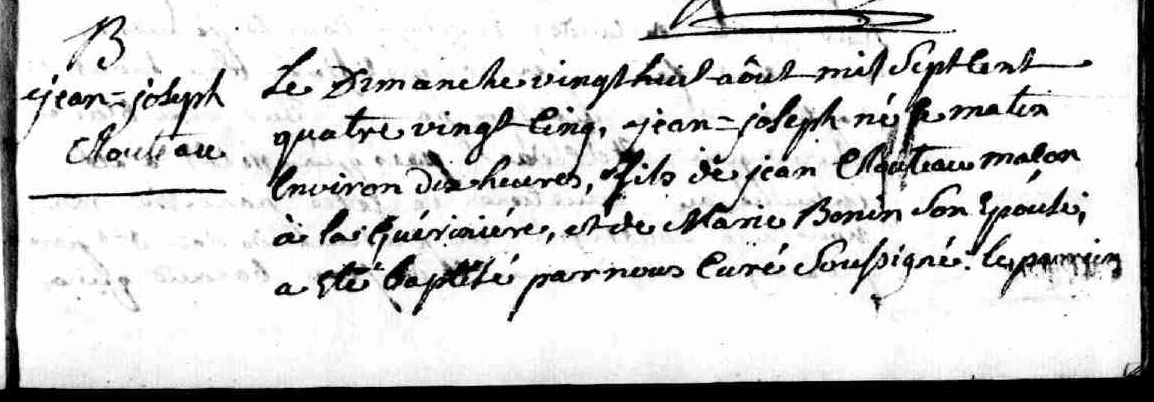 B
jean=joseph
Clouteau
Le Dimanche vingt huit août mil Sept Cent
quatre vingt Cinq, jean=joseph né le matin
Environ dix heures, fils de jean Clouteau maçon
à la Guérinière, et de Marie Bonin Son Epouse,
a Eté baptisé par nous Curé Soussigné. le parrein